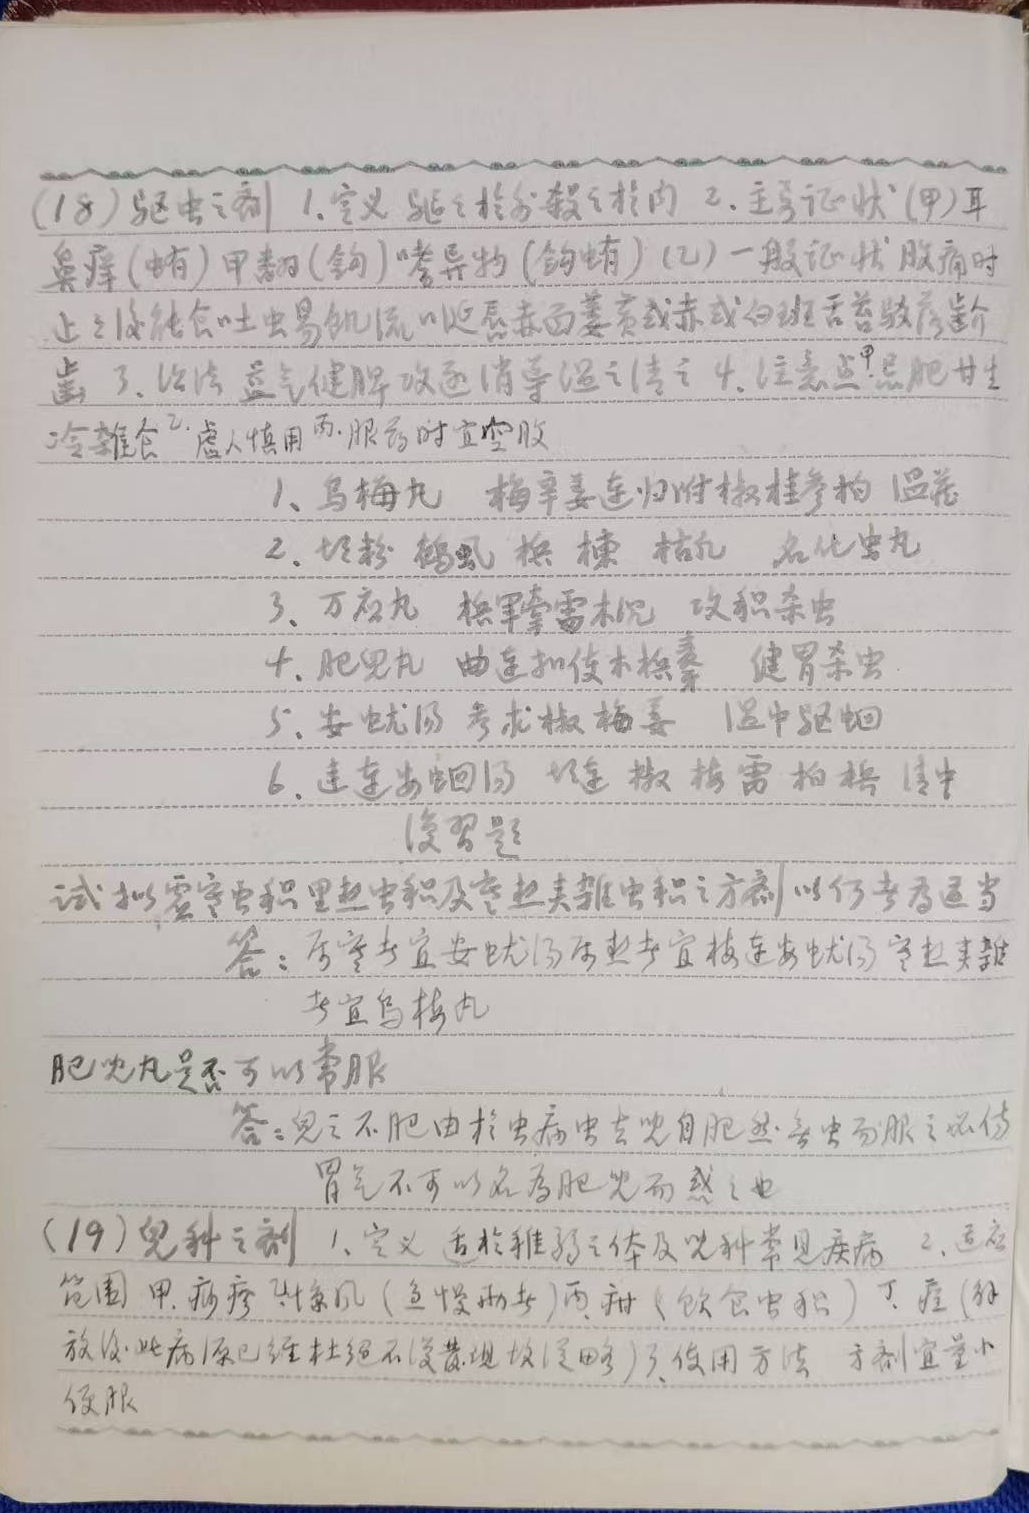 (18) 驱虫之剂 1.定义 驱之於外殺之於内 2.主要证状 (甲) 耳
鼻痒 (蛕) 甲翻 (鈎) 嗜异物 (鈎蛕) (乙) 一般证状 腹痛时
止之後能食吐虫易飢流口涎唇赤面萎黄或赤或白斑舌苔驳落齘
齒 3.治法 益气健脾攻逐消导温之清之 4.注意点 甲.忌肥甘生
冷雜食 乙.虚人慎用 丙.服药时宜空腹
1、乌梅丸 梅辛姜连归附椒桂参柏 温藏
2.铅粉 鶴虱 槟 楝 枯凡 名化虫丸
3、万应丸 槟軍牽雷木沉 攻积杀虫
4.肥兒丸 曲连扣使木槟 健胃杀虫
5、安蚘汤 参术椒梅姜 温中驱蛔
6.连安蛔汤 连椒梅雷柏槟 清中
復習题
试拟虚寒虫积里热虫积及寒热夹雜虫积之方剂以何者为适当
答：属寒者宜安蚘汤属热者宜梅连安蚘汤寒热夹雜
者宜乌梅丸
肥兒丸是否可以常服
答：兒之不肥由於虫病虫去兒自肥然無虫而服之必伤
胃气不可以名为肥兒而惑之也
(19) 兒科之剂 1、定义 适於稚弱之体及兒科常見疾病 2、适应
范围 甲.痧疹 乙.惊风 (急慢两者) 丙.疳 (飲食虫积) 丁.痘 (解
放後此病源已经杜绝不復發現故從略) 3、使用方法 方剂宜量小
便服